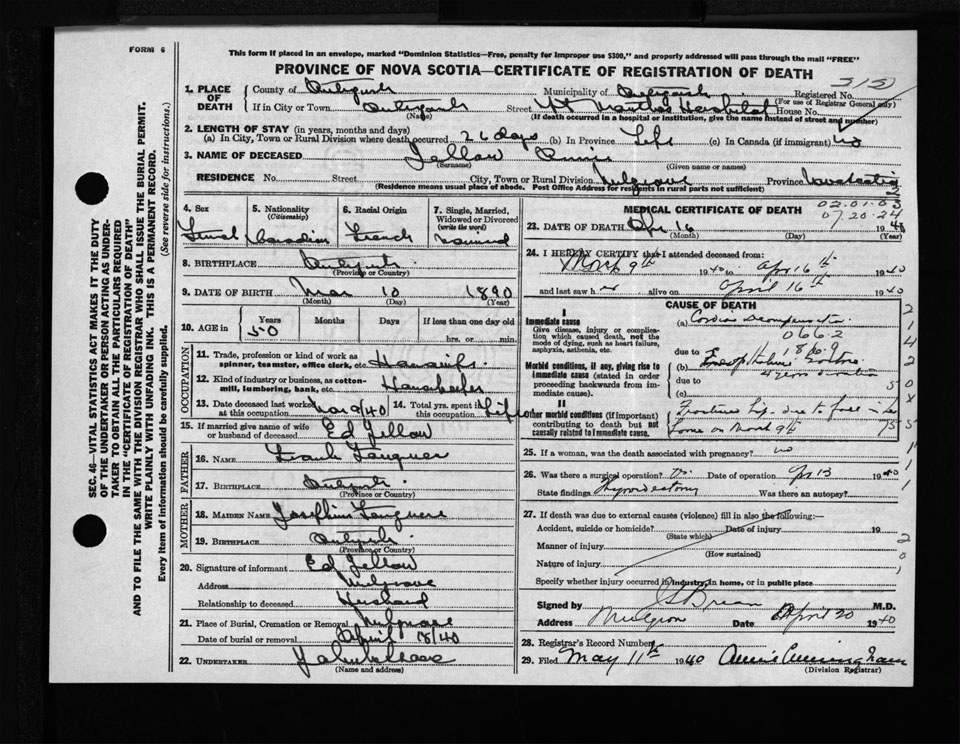 FORM 6
This form if placed in an envelope, marked "Dominion Statistics—Free, penalty for improper use $300," and properly addressed will pass through the mail "FREE"
PROVINCE OF NOVA SCOTIA—CERTIFICATE OF REGISTRATION OF DEATH
SEC. 46—VITAL STATISTICS ACT MAKES IT THE DUTY
OF THE UNDERTAKER OR PERSON ACTING AS UNDER-
TAKER TO OBTAIN ALL THE PARTICULARS REQUIRED
IN THE "CERTIFICATE OF REGISTRATION OF DEATH"
AND TO FILE THE SAME WITH THE DIVISION REGISTRAR WHO SHALL ISSUE THE BURIAL PERMIT.
WRITE PLAINLY WITH UNFADING INK. THIS IS A PERMANENT RECORD.
Every item of information should be carefully supplied. (See reverse side for instructions.)
1. PLACE OF DEATH
County of Municipality of Registered No.
(For use of Registrar General only)
If in City or Town (Name) Street St Marthas Hospital House No.
(If death occurred in a hospital or institution, give the name instead of street and number)
2. LENGTH OF STAY (in years, months and days)
(a) In City, Town or Rural Division where death occurred 26 days (b) In Province Life (c) In Canada (if immigrant) no
3. NAME OF DECEASED Jellow Annie
(Surname) (Given name or names)
RESIDENCE No. Street City, Town or Rural Division Mulgrave Province Nova Scotia
(Residence means usual place of abode. Post Office Address for residents in rural parts not sufficient)
4. Sex
5. Nationality (Citizenship) Canadian
6. Racial Origin French
7. Single, Married, Widowed or Divorced (write the word) Married
8. BIRTHPLACE
(Province or Country)
9. DATE OF BIRTH Mar 10 1890
(Month) (Day) (Year)
10. AGE in Years Months Days If less than one day old
50 hrs. or min.
OCCUPATION
11. Trade, profession or kind of work as spinner, teamster, office clerk, etc. Housewife
12. Kind of industry or business, as cotton-mill, lumbering, bank, etc. Housekeeper
13. Date deceased last worked at this occupation Mar 9/40 14. Total yrs. spent in this occupation Life
15. If married give name of wife or husband of deceased Ed Jellow
FATHER
16. NAME Frank
17. BIRTHPLACE
(Province or Country)
MOTHER
18. MAIDEN NAME Josephine
19. BIRTHPLACE
(Province or Country)
20. Signature of informant Ed Jellow
Address Mulgrave
Relationship to deceased Husband
21. Place of Burial, Cremation or Removal Mulgrave
Date of burial or removal April 18/40
22. UNDERTAKER
(Name and address)
MEDICAL CERTIFICATE OF DEATH
02.01.03
07.20.24
23. DATE OF DEATH Apr 16 1940
(Month) (Day) (Year)
24. I HEREBY CERTIFY that I attended deceased from:
March 9th 1940 to Apr 16th 1940
and last saw her alive on April 16th 1940
CAUSE OF DEATH
I
Immediate cause
Give disease, injury or complication which caused death, not the mode of dying, such as heart failure, asphyxia, asthenia, etc.
(a) Cardiac Decompensation
0662
due to
Morbid conditions, if any, giving rise to immediate cause (stated in order proceeding backwards from immediate cause).
(b) Goitre
4 years duration
due to
(c)
II
Other morbid conditions (if important) contributing to death but not causally related to immediate cause.
Fractured hip due to fall in her
home on March 9th
25. If a woman, was the death associated with pregnancy? no
26. Was there a surgical operation? Date of operation Apr 13 1940
State findings Was there an autopsy?
27. If death was due to external causes (violence) fill in also the following:—
Accident, suicide or homicide? Date of injury 19
(State which)
Manner of injury
(How sustained)
Nature of injury
Specify whether injury occurred in industry, in home, or in public place
Signed by M.D.
Address Date April 20 1940
28. Registrar's Record Number
29. Filed May 11th 1940 Annie Cunningham
(Division Registrar)